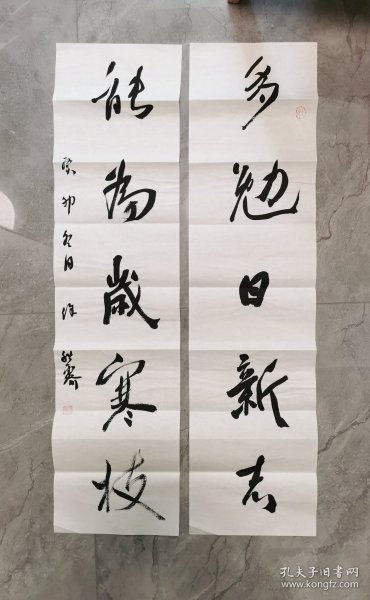 多勉日新志
能为歲寒枝
癸卯冬日
孔夫子旧书网
kongfz.com